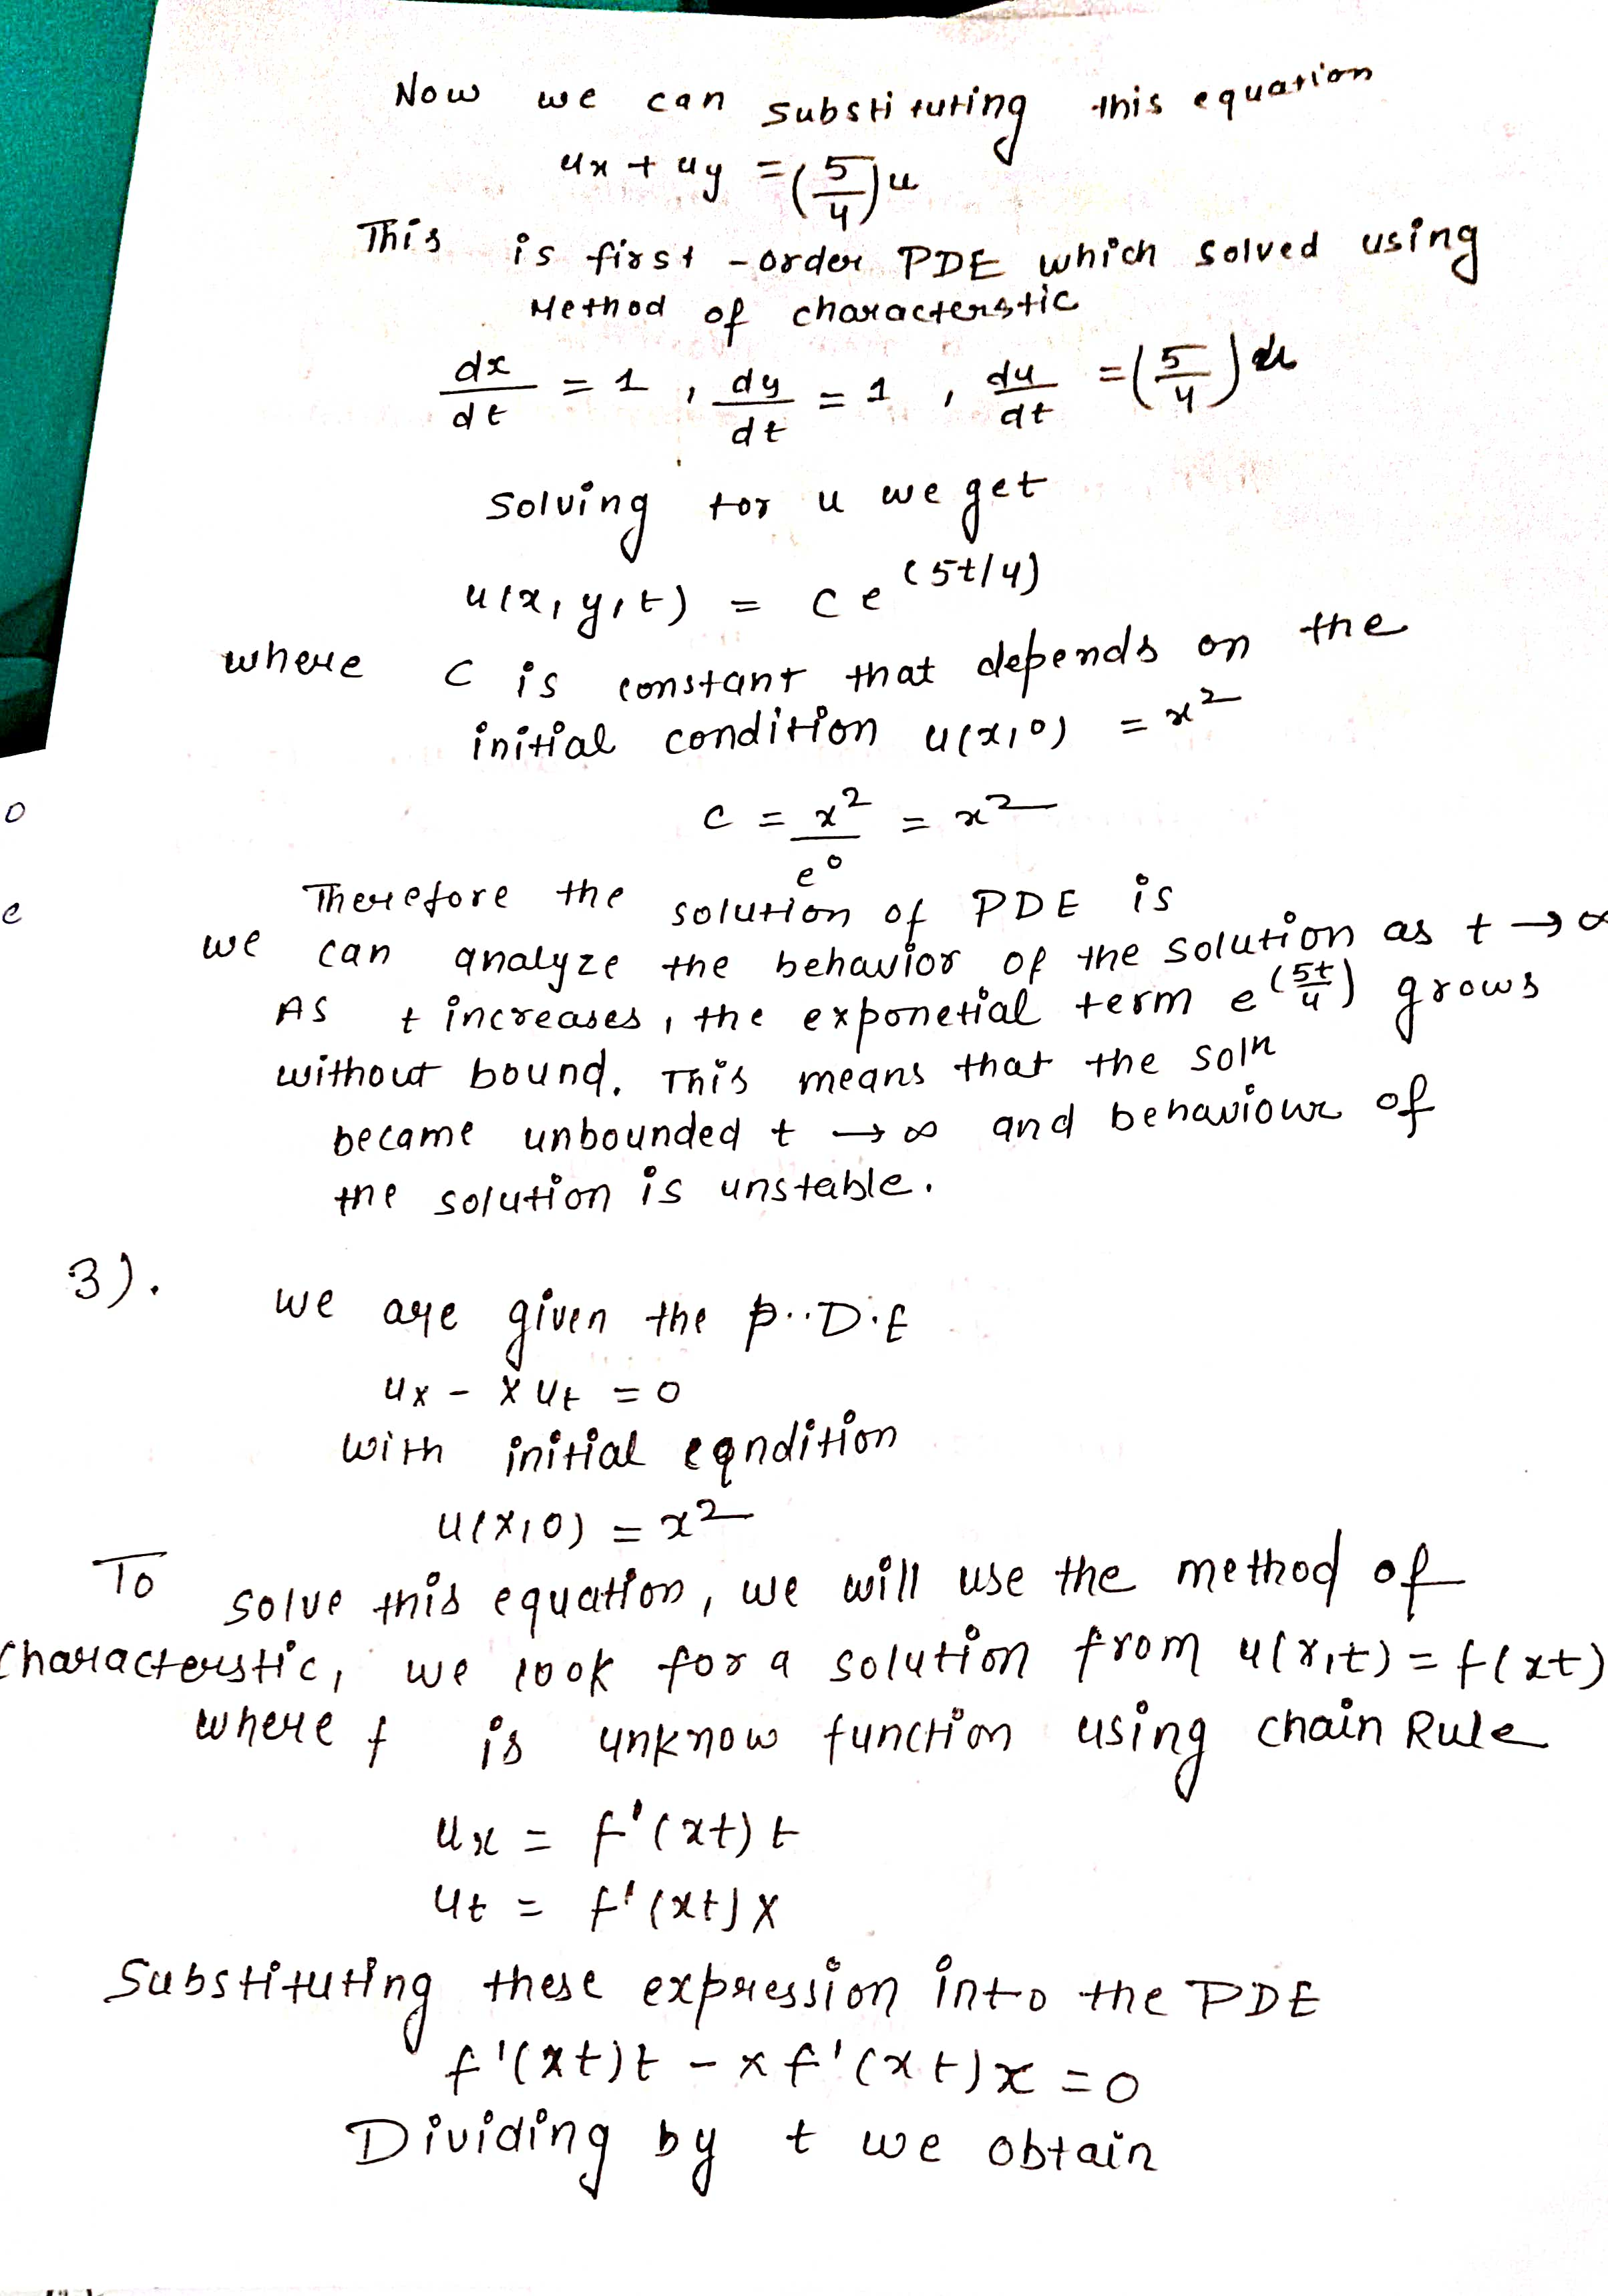 Now we can substituting this equation
ux + uy = (5/4)u
This is first - order PDE which solved using
Method of characterstic
dx/dt = 1 , dy/dt = 1 , du/dt = (5/4) u
solving for u we get
u(x,y,t) = c e^(5t/4)
where c is constant that depends on the
initial condition u(x,0) = x²
c = x²/e⁰ = x²
Therefore the solution of PDE is
we can analyze the behavior of the solution as t → ∞
As t increases, the exponetial term e^(5t/4) grows
without bound. This means that the solⁿ
became unbounded t → ∞ and behaviour of
the solution is unstable.
3). we are given the P..D.E
ux - x ut = 0
with initial condition
u(x,0) = x²
To solve this equation, we will use the method of
characterstic, we look for a solution from u(x,t) = f(xt)
where f is unknow function using chain Rule
ux = f'(xt) t
ut = f'(xt) x
Substituting these expression into the PDE
f'(xt)t - x f'(xt)x = 0
Dividing by t we obtain